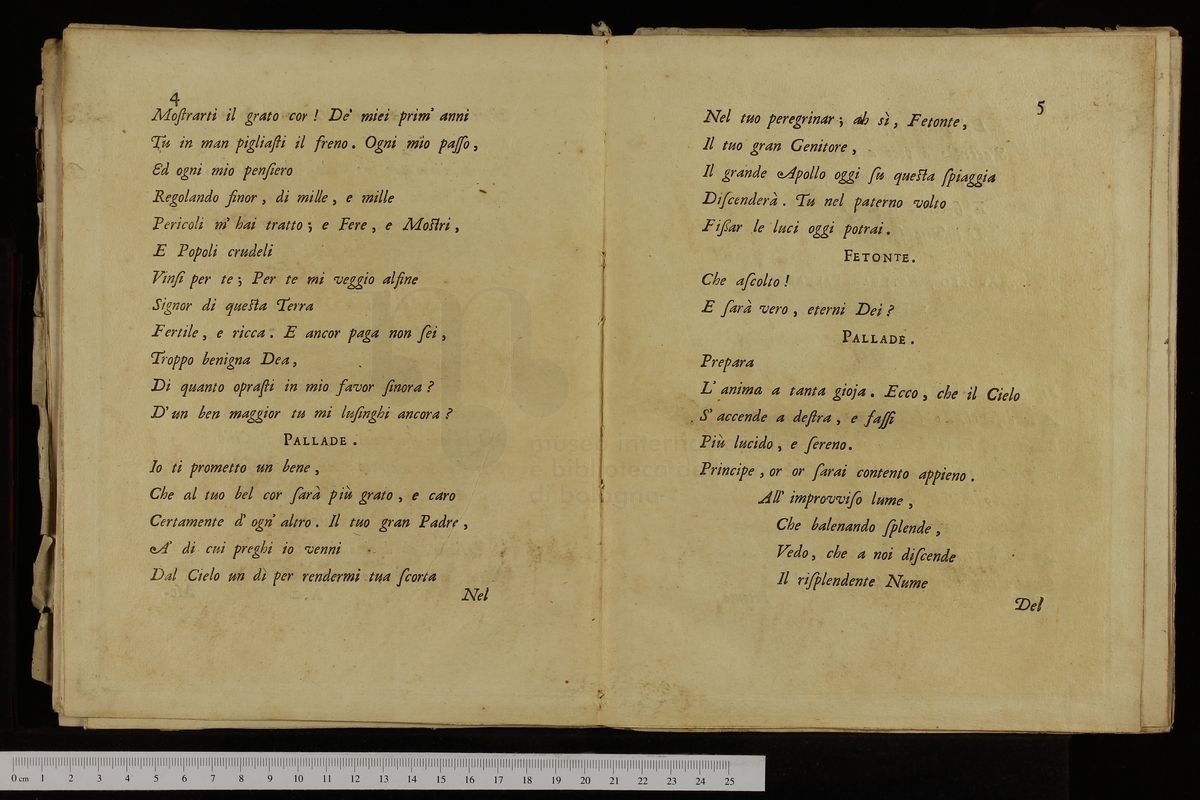 4
Mostrarti il grato cor ! De' miei prim' anni
Tu in man pigliasti il freno. Ogni mio passo,
Ed ogni mio pensiero
Regolando finor, di mille, e mille
Pericoli m' hai tratto; e Fere, e Mostri,
E Popoli crudeli
Vinsi per te; Per te mi veggio alfine
Signor di questa Terra
Fertile, e ricca. E ancor paga non sei,
Troppo benigna Dea,
Di quanto oprasti in mio favor finora?
D' un ben maggior tu mi lusinghi ancora?
PALLADE.
Io ti prometto un bene,
Che al tuo bel cor sarà più grato, e caro
Certamente d' ogn' altro. Il tuo gran Padre,
A' di cui preghi io venni
Dal Cielo un dì per rendermi tua scorta
Nel
5
Nel tuo peregrinar; ah sì, Fetonte,
Il tuo gran Genitore,
Il grande Apollo oggi su questa spiaggia
Discenderà. Tu nel paterno volto
Fissar le luci oggi potrai.
FETONTE.
Che ascolto!
E sarà vero, eterni Dei?
PALLADE.
Prepara
L' anima a tanta gioja. Ecco, che il Cielo
S' accende a destra, e fassi
Più lucido, e sereno.
Principe, or or sarai contento appieno.
All' improvviso lume,
Che balenando splende,
Vedo, che a noi discende
Il risplendente Nume
Del
museo interna
e biblioteca de
di bologna
0 cm 1 2 3 4 5 6 7 8 9 10 11 12 13 14 15 16 17 18 19 20 21 22 23 24 25